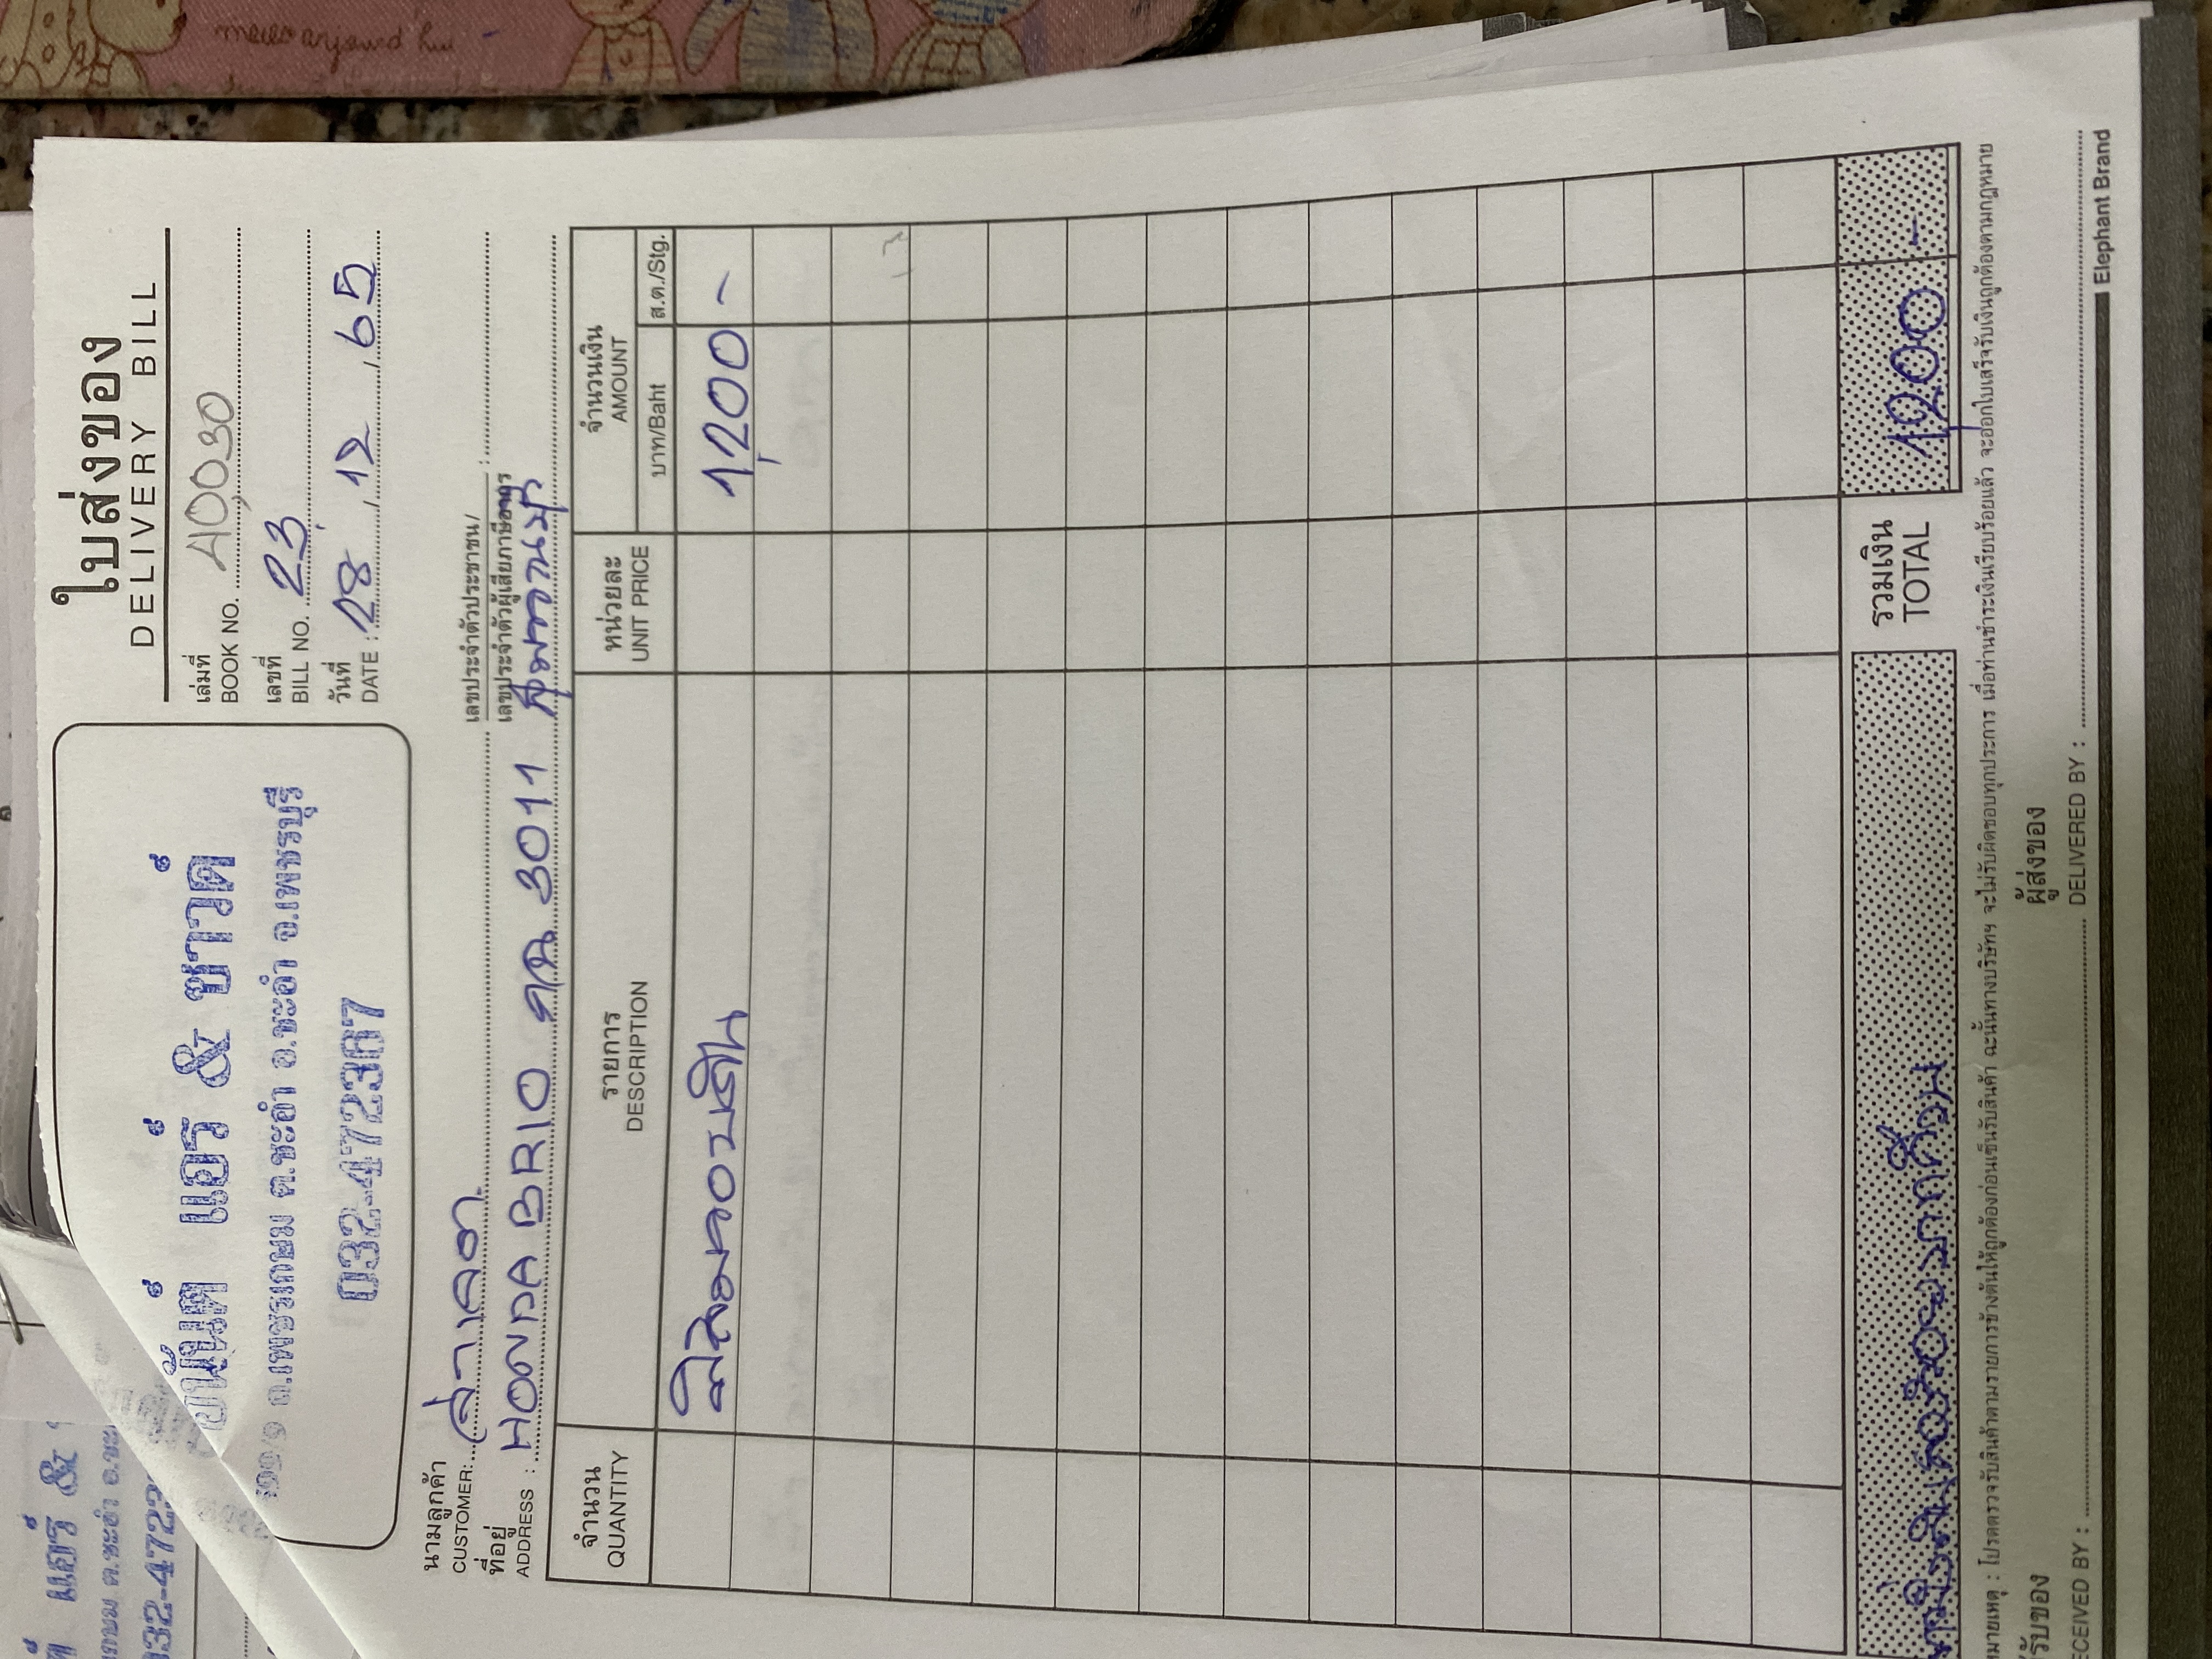 ใบส่งของ
DELIVERY BILL
อนันต์ แอร์ & ซาวด์
ถ.เพชรเกษม ต.ชะอำ อ.ชะอำ จ.เพชรบุรี
032-472387
เล่มที่
BOOK NO. A0030
เลขที่
BILL NO. 23
วันที่
DATE : 28, 12, 65
นามลูกค้า
CUSTOMER:
เลขประจำตัวประชาชน/
เลขประจำตัวผู้เสียภาษีอากร
ที่อยู่
ADDRESS : HONDA BRIO 3011
จำนวน
QUANTITY
รายการ
DESCRIPTION
หน่วยละ
UNIT PRICE
จำนวนเงิน
AMOUNT
บาท/Baht
ส.ต./Stg.
ฟิล์มกรองแสง 1,200 -
หนึ่งพันสองร้อยบาทถ้วน
รวมเงิน
TOTAL
1,200 -
หมายเหตุ : โปรดตรวจรับสินค้าตามรายการข้างต้นให้ถูกต้องก่อนเซ็นรับสินค้า ฉะนั้นทางบริษัทฯ จะไม่รับผิดชอบทุกประการ เมื่อท่านชำระเงินเรียบร้อยแล้ว จะออกใบเสร็จรับเงินถูกต้องตามกฎหมาย
ผู้รับของ
RECEIVED BY :
ผู้ส่งของ
DELIVERED BY :
Elephant Brand